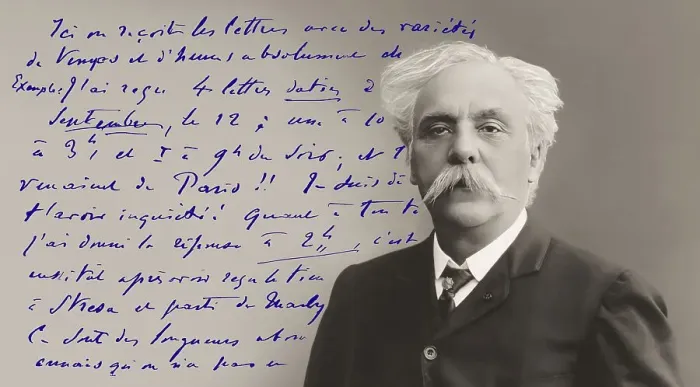 Ici on reçoit les lettres avec des variétés
de temps et d'heures absolument de
Exemple: J'ai reçu 4 lettres datées 2
Septembre, le 12 ; une à 10
à 3h, et 1 à 9h du soir, et
venaient de Paris !! Je suis dé
t'avoir inquiété! Quant à ton té
j'ai donné la réponse à 2h, c'est
aussitôt après avoir reçu le tien
à Stresa et parti de Marly
Ce sont des longueurs abso